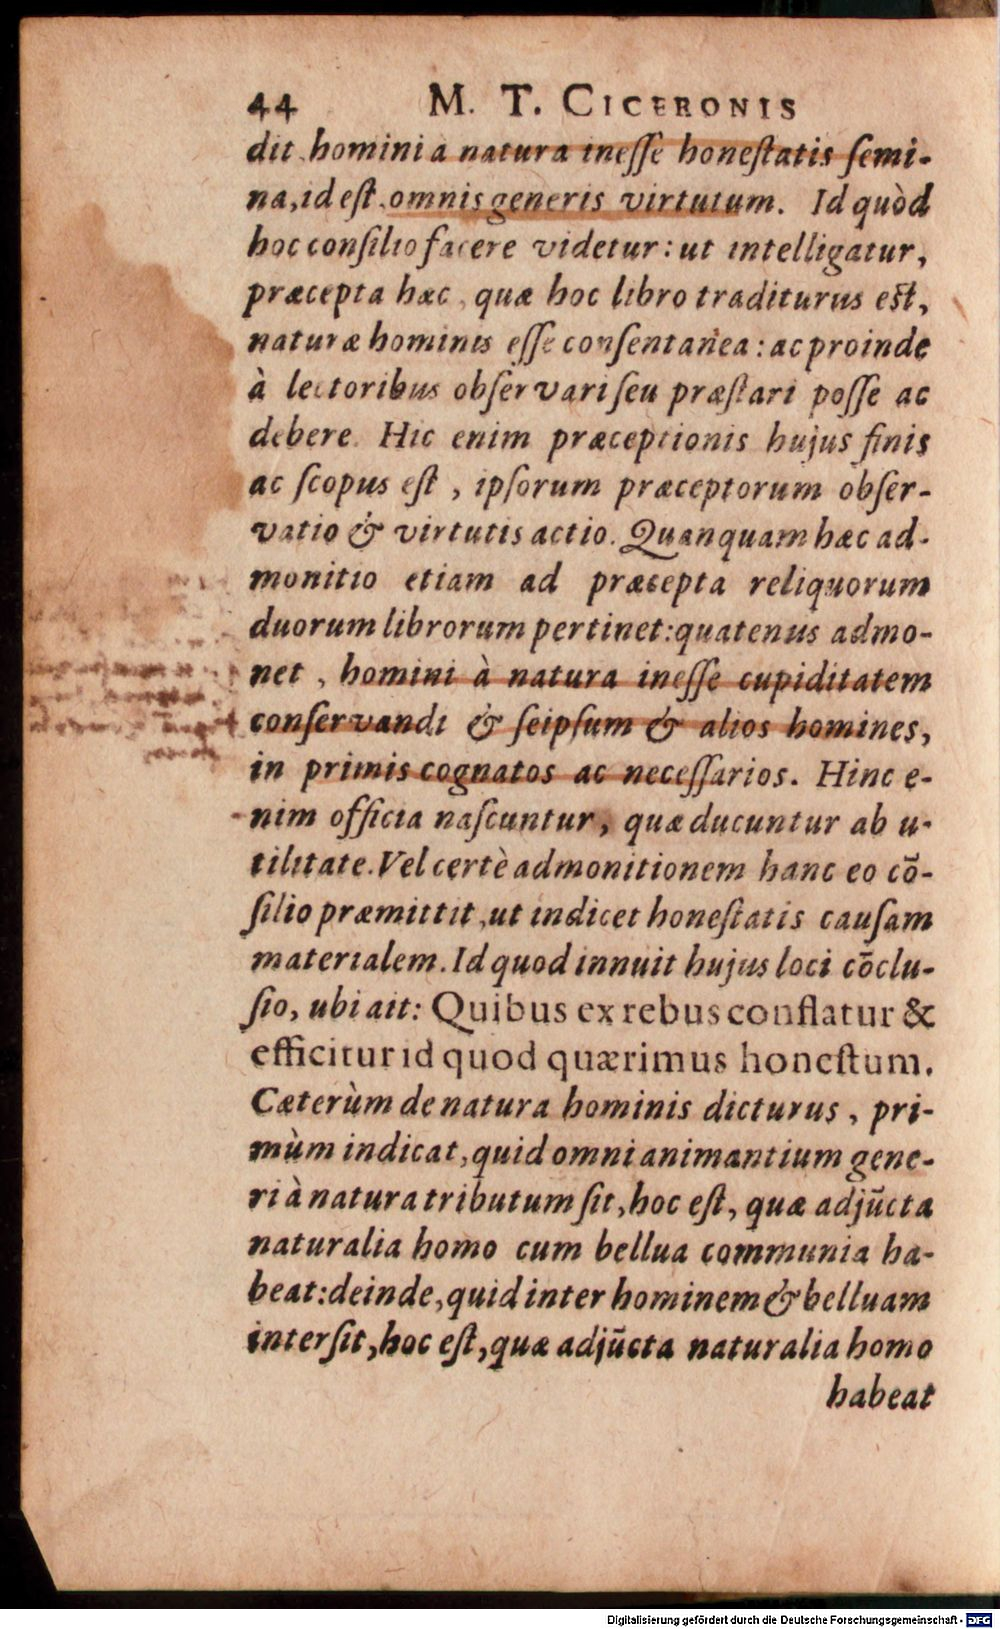 44 M. T. CICERONIS
dit hominia natura ineſſe honeſtatis ſemi-
na, id eſt omnis generis virtutum. Id quòd
hoc conſilio facere videtur: ut intelligatur,
præcepta hæc, quæ hoc libro traditurus eſt,
naturæ hominis eſſe conſentanea: ac proinde
à lectoribus obſervari ſeu præſtari poſſe ac
debere. Hic enim præceptionis hujus finis
ac ſcopus eſt, ipſorum præceptorum obſer-
vatio & virtutis actio. Quanquam hæc ad-
monitio etiam ad præcepta reliquorum
duorum librorum pertinet: quatenus admo-
net, homini à natura ineſſe cupiditatem
conſervandi & ſeipſum & alios homines,
in primis cognatos ac neceſſarios. Hinc e-
nim officia naſcuntur, quæ ducuntur ab u-
tilitate. Vel certè admonitionem hanc eo cō-
ſilio præmittit, ut indicet honeſtatis cauſam
materialem. Id quod innuit hujus loci cōclu-
ſio, ubi ait: Quibus ex rebus conflatur &
efficitur id quod quærimus honeſtum.
Cæterùm de natura hominis dicturus, pri-
mùm indicat, quid omni animantium gene-
ri à natura tributum ſit, hoc eſt, quæ adjūcta
naturalia homo cum bellua communia ha-
beat: deinde, quid inter hominem & belluam
interſit, hoc eſt, quæ adjūcta naturalia homo
habeat
Digitalisierung gefördert durch die Deutsche Forschungsgemeinschaft - DFG